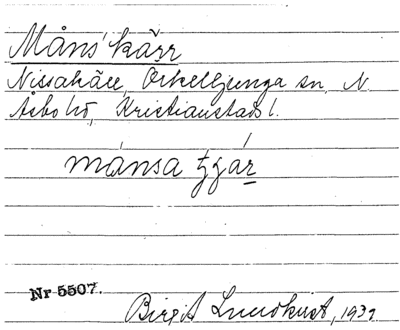 Måns' kärr
Nissakäll, Örkelljunga sn, N.
Åsbo hd, Kristianstads l.
månsa
Nr 5507.
Birgit Lundkvist, 193